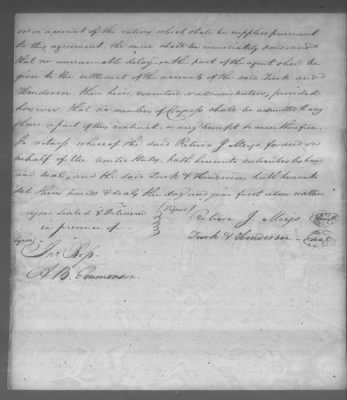 or on account of the rations which shall be supplied pursuant
to this agreement. the same shall be immediately paid, and
that no unreasonable delay, on the part of the agent shall be
given to the settlement of the accounts of the said Turk and
Henderson their heirs, executors or administrators, provided
however that no member of Congress shall be admitted to any
share or part of this contract, or any benefit to arise therefrom.
In witness whereof the said Return J Meigs for and on
behalf of the United States, hath hereunto subscribed his hand
and seal, and the said Turk & Henderson hath hereunto
set their hands & seals the day and year first above written
Signed Sealed & Delivered
in presence of
(Signed)
Return J. Meigs Seal
Turk & Henderson Seal
Signed
Jno
A B